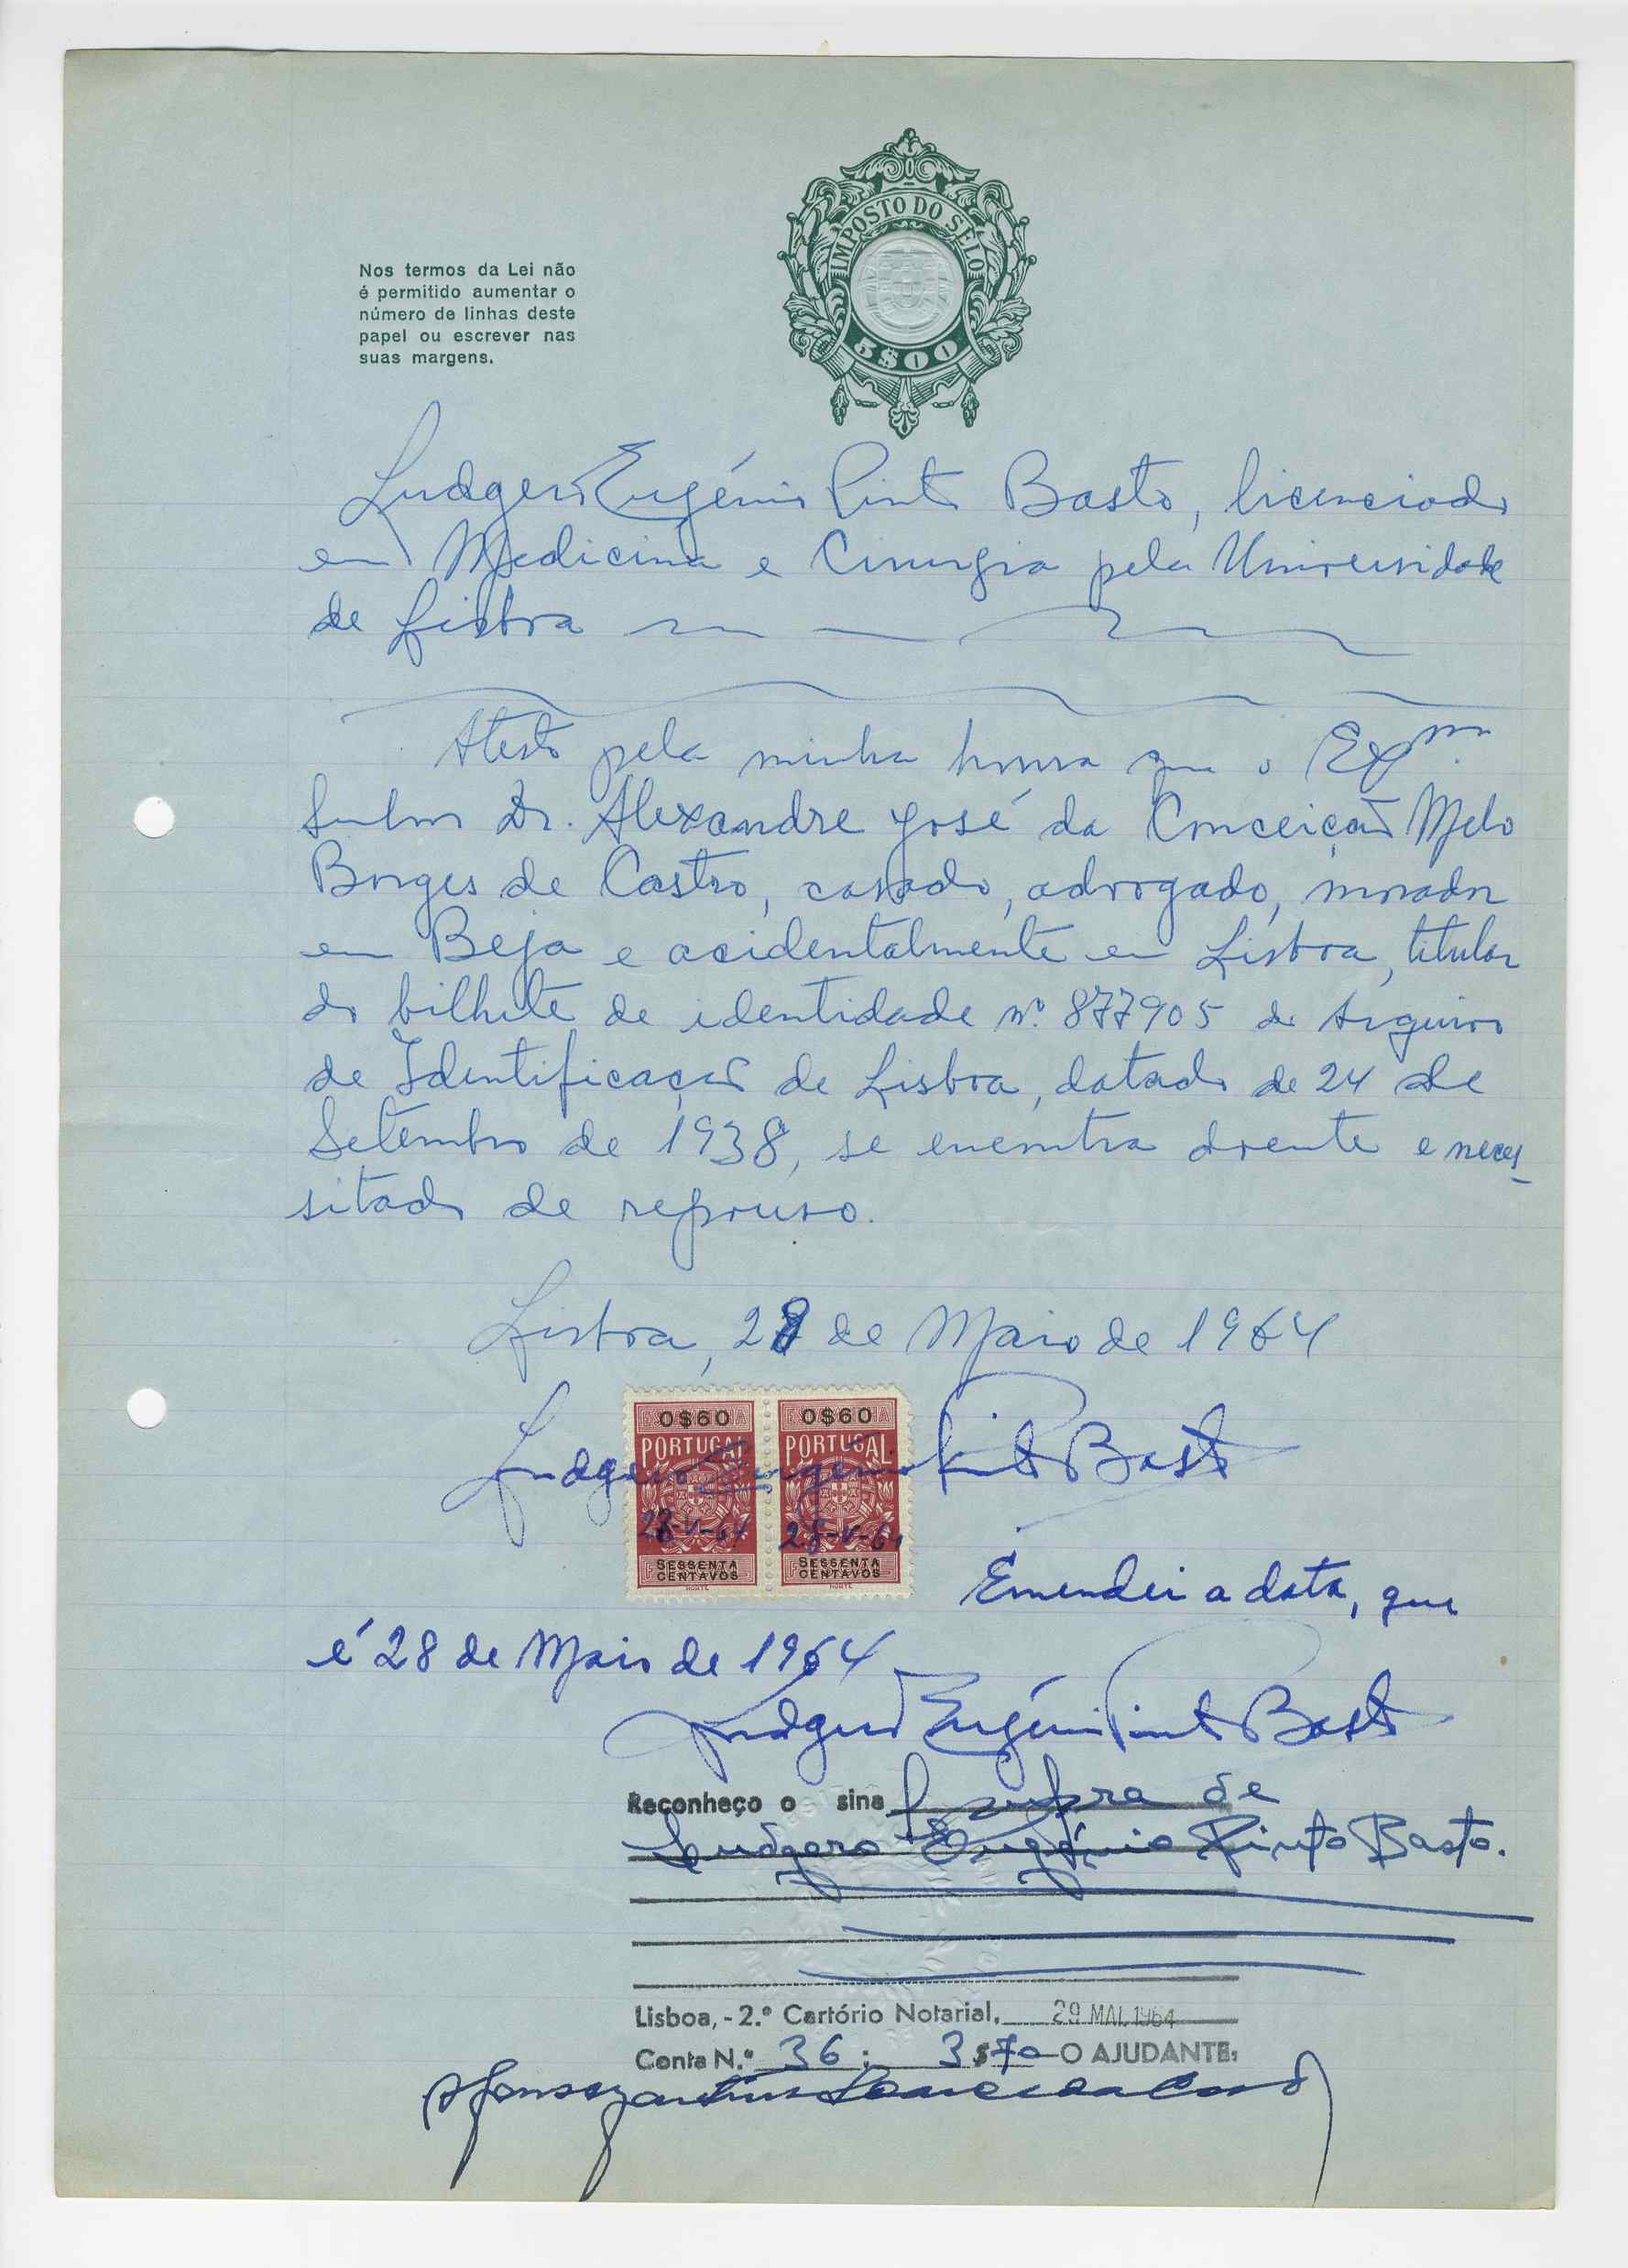 IMPOSTO DO SELO
5$00
Nos termos da Lei não
é permitido aumentar o
número de linhas deste
papel ou escrever nas
suas margens.
Ludgero Eugénio Pinto Basto, licenciado
em Medicina e Cirurgia pela Universidade
de Lisboa
Atesto pela minha honra que o Exmo.
Senhor Dr. Alexandre José da Conceição Melo
Borges de Castro, casado, advogado, morador
em Beja e acidentalmente em Lisboa, titular
do bilhete de identidade nº 877905 do Arquivo
de Identificação de Lisboa, datado de 24 de
Setembro de 1938, se encontra doente e neces-
sitado de repouso.
Lisboa, 28 de Maio de 1964
0$60 0$60
PORTUGAL PORTUGAL
Ludgero Eugénio Pinto Basto
28-V-64 28-V-64
SESSENTA CENTAVOS SESSENTA CENTAVOS
Emendei a data, que
é 28 de Maio de 1964
Ludgero Eugénio Pinto Basto
Reconheço o sinal supra de
Ludgero Eugénio Pinto Basto.
Lisboa, - 2.º Cartório Notarial, 29 MAI. 1964
Conta N.º 36; 3$70 O AJUDANTE,